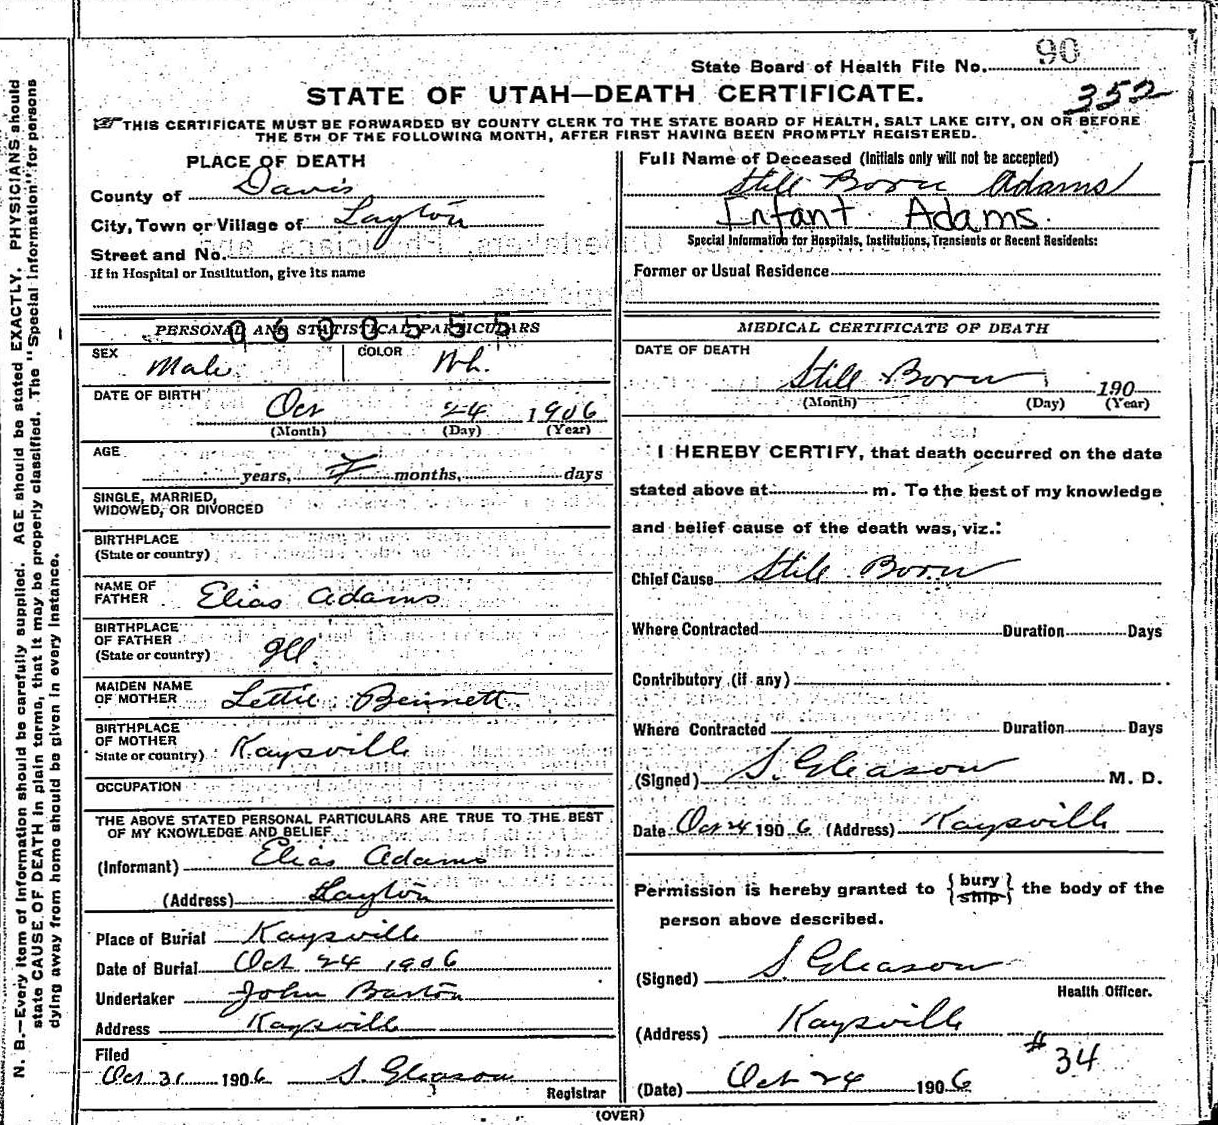 N. B.—Every item of information should be carefully supplied. AGE should be stated EXACTLY. PHYSICIANS should
state CAUSE OF DEATH in plain terms, that it may be properly classified. The "Special information" for persons
dying away from home should be given in every instance.
State Board of Health File No. 90
352
STATE OF UTAH—DEATH CERTIFICATE.
☞THIS CERTIFICATE MUST BE FORWARDED BY COUNTY CLERK TO THE STATE BOARD OF HEALTH, SALT LAKE CITY, ON OR BEFORE
THE 5TH OF THE FOLLOWING MONTH, AFTER FIRST HAVING BEEN PROMPTLY REGISTERED.
PLACE OF DEATH
County of Davis
City, Town or Village of Layton
Street and No.
If in Hospital or Institution, give its name
Full Name of Deceased (Initials only will not be accepted)
Still Born Adams
Infant Adams.
Special Information for Hospitals, Institutions, Transients or Recent Residents:
Former or Usual Residence
PERSONAL AND STATISTICAL PARTICULARS
0600555
SEX Male COLOR Wh.
DATE OF BIRTH
Oct 24 1906
(Month) (Day) (Year)
AGE
years, 7 months, days
SINGLE, MARRIED,
WIDOWED, OR DIVORCED
BIRTHPLACE
(State or country)
NAME OF
FATHER Elias Adams
BIRTHPLACE
OF FATHER
(State or country) Ill.
MAIDEN NAME
OF MOTHER Lettie Bennett
BIRTHPLACE
OF MOTHER
State or country) Kaysville
OCCUPATION
THE ABOVE STATED PERSONAL PARTICULARS ARE TRUE TO THE BEST
OF MY KNOWLEDGE AND BELIEF
(Informant) Elias Adams
(Address) Layton
Place of Burial Kaysville
Date of Burial Oct 24 1906
Undertaker John Barton
Address Kaysville
Filed
Oct 31 1906 S. Gleason
Registrar
MEDICAL CERTIFICATE OF DEATH
DATE OF DEATH
Still Born 190
(Month) (Day) (Year)
I HEREBY CERTIFY, that death occurred on the date
stated above at m. To the best of my knowledge
and belief cause of the death was, viz.:
Chief Cause Still Born
Where Contracted Duration Days
Contributory (if any)
Where Contracted Duration Days
(Signed) S. Gleason M. D.
Date Oct 24 1906 (Address) Kaysville
Permission is hereby granted to {bury ship} the body of the
person above described.
(Signed) S. Gleason
Health Officer.
(Address) Kaysville
#34
(Date) Oct 24 1906
(OVER)